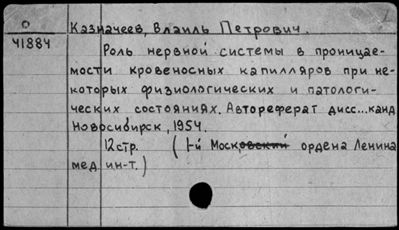 О
41884
Казначеев, Влаиль Петрович.
Роль нервной системы в проницае-
мости кровеносных капилляров при не-
которых физиологических и патологи-
ческих состояниях. Автореферат дисс...канд
Новосибирск, 1954.
12стр. (1-й Московский ордена Ленина
мед. ин-т.)